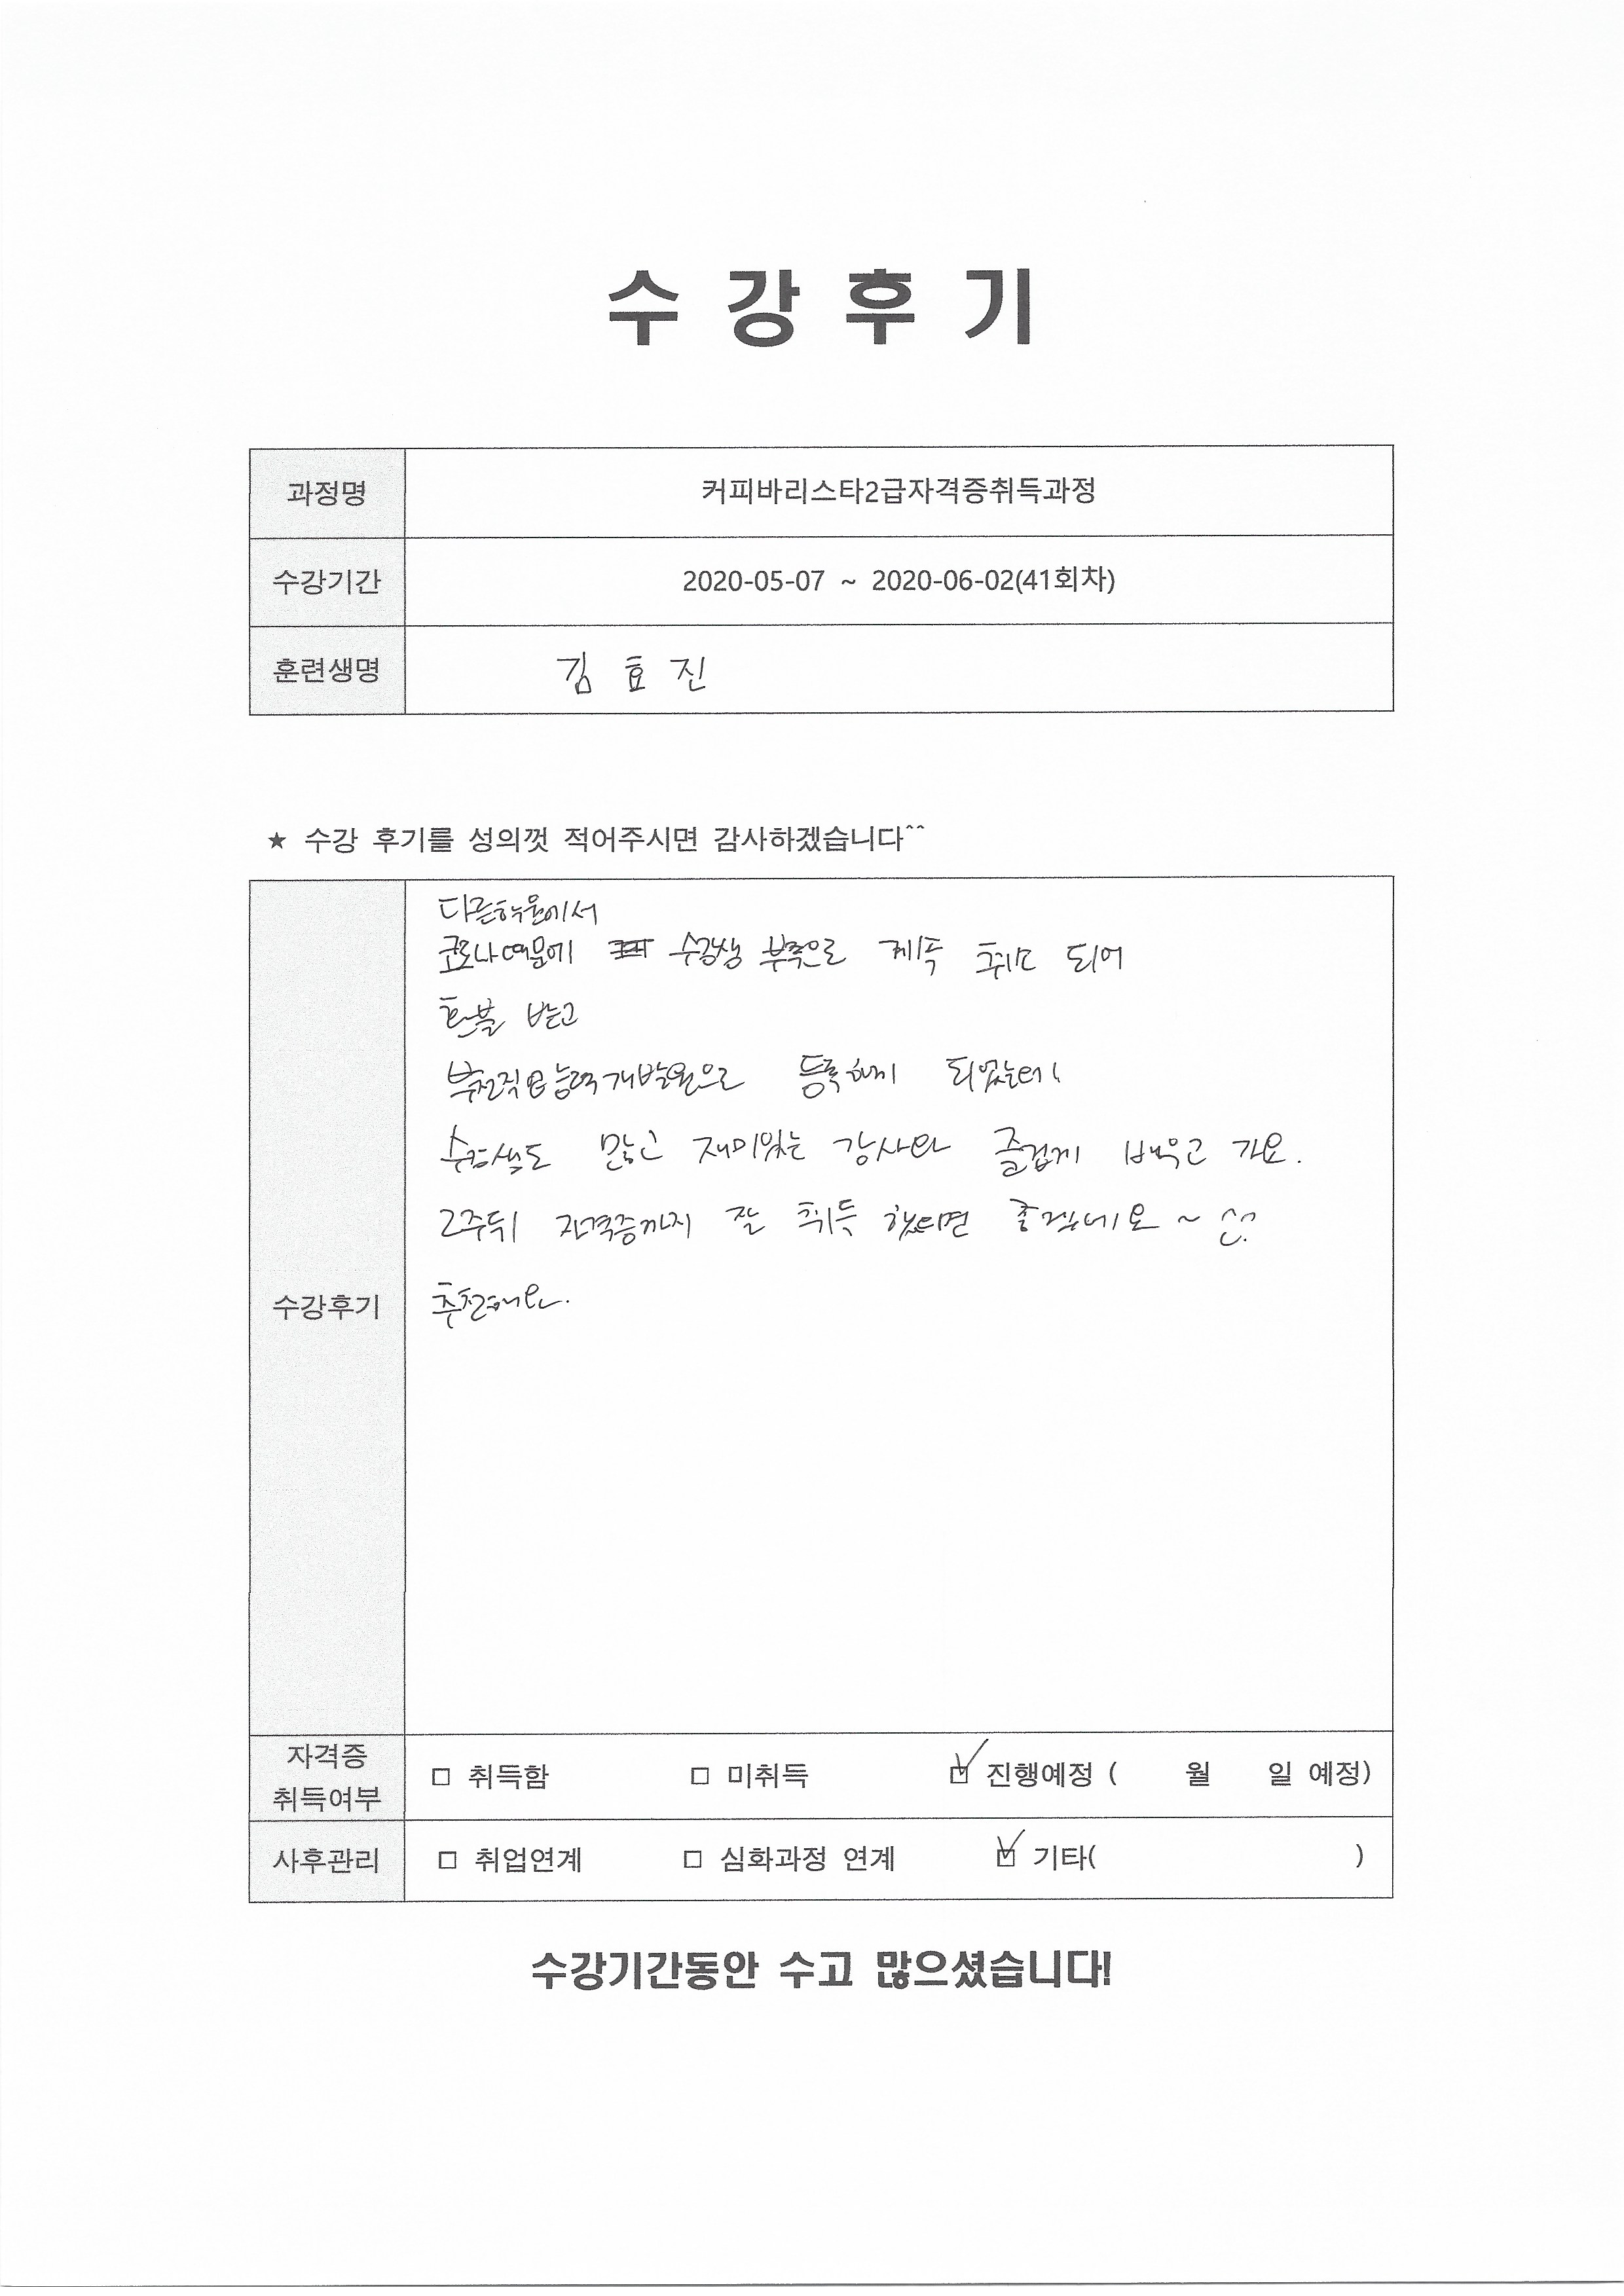 수 강 후 기
과정명 커피바리스타2급자격증취득과정
수강기간 2020-05-07 ~ 2020-06-02(41회차)
훈련생명 김 효 진
★ 수강 후기를 성의껏 적어주시면 감사하겠습니다^^
다른학원에서
코로나때문에 수강생 부족으로 계속 취소 되어
환불 받고
부천직업능력개발원으로 등록하게 되었는데
수강생도 많고 재미있는 강사와 즐겁게 배우고 가요.
2주뒤 자격증까지 잘 취득 했다면 좋겠네요~
수강후기
추천해요.
자격증
취득여부
□ 취득함 □ 미취득 ☑ 진행예정 ( 월 일 예정)
사후관리 □ 취업연계 □ 심화과정 연계 ☑ 기타( )
수강기간동안 수고 많으셨습니다!